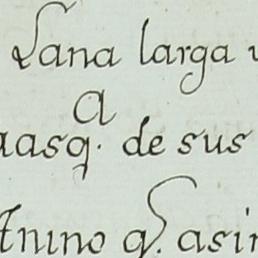 Lana larga
A
aasq. de sus
Anino q. asi